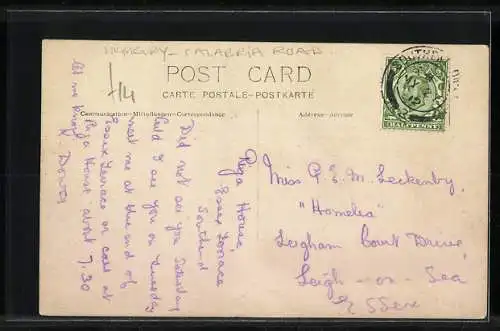 HIGHBURY - CALABRIA ROAD
1/4
POST CARD
CARTE POSTALE-POSTKARTE
Communication-Mitteilungen-Correspondance
Address-adresse
HALFPENNY
Riga House,
Essex Terrace
Southend
Did not see you Saturday
Could I see you on Tuesday
meet me at the end of
Essex Terrace or call at
Riga House about 7.30
let me know
K. Dover
Miss P. E. M. Leckenby,
"Homelea"
Leigham Court Drive,
Leigh - on - Sea
Essex